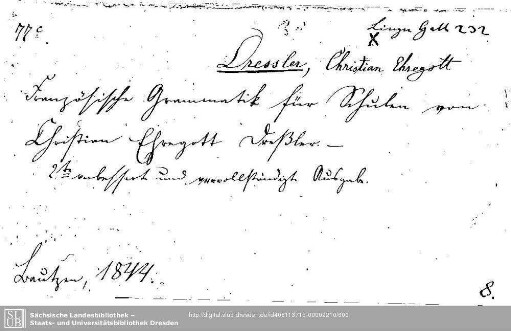 77c.
Lingu Gall 232
x
Dressler, Christian Ehregott
Französische Grammatik für Schulen von
Christian Ehregott Dreßler. —
2te verbesserte und vervollständigte Ausgabe.
Bautzen, 1844.
8.
Sächsische Landesbibliothek –
Staats- und Universitätsbibliothek Dresden